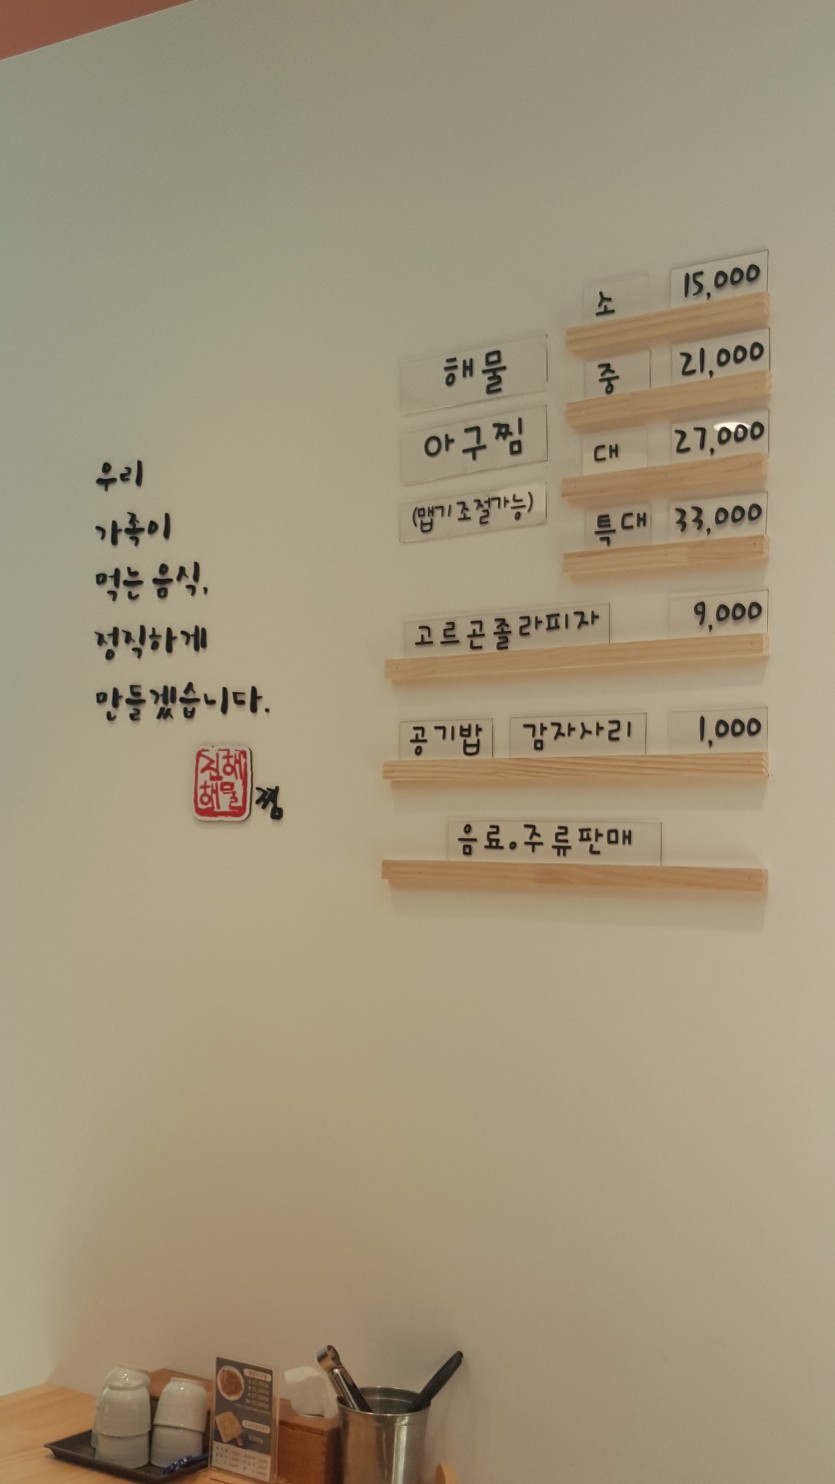 우리
가족이
먹는 음식,
정직하게
만들겠습니다.
진해
해물
찜
해물
아구찜
(맵기조절가능)
소 15,000
중 21,000
대 27,000
특대 33,000
고르곤졸라피자 9,000
공기밥 감자사리 1,000
음료.주류판매